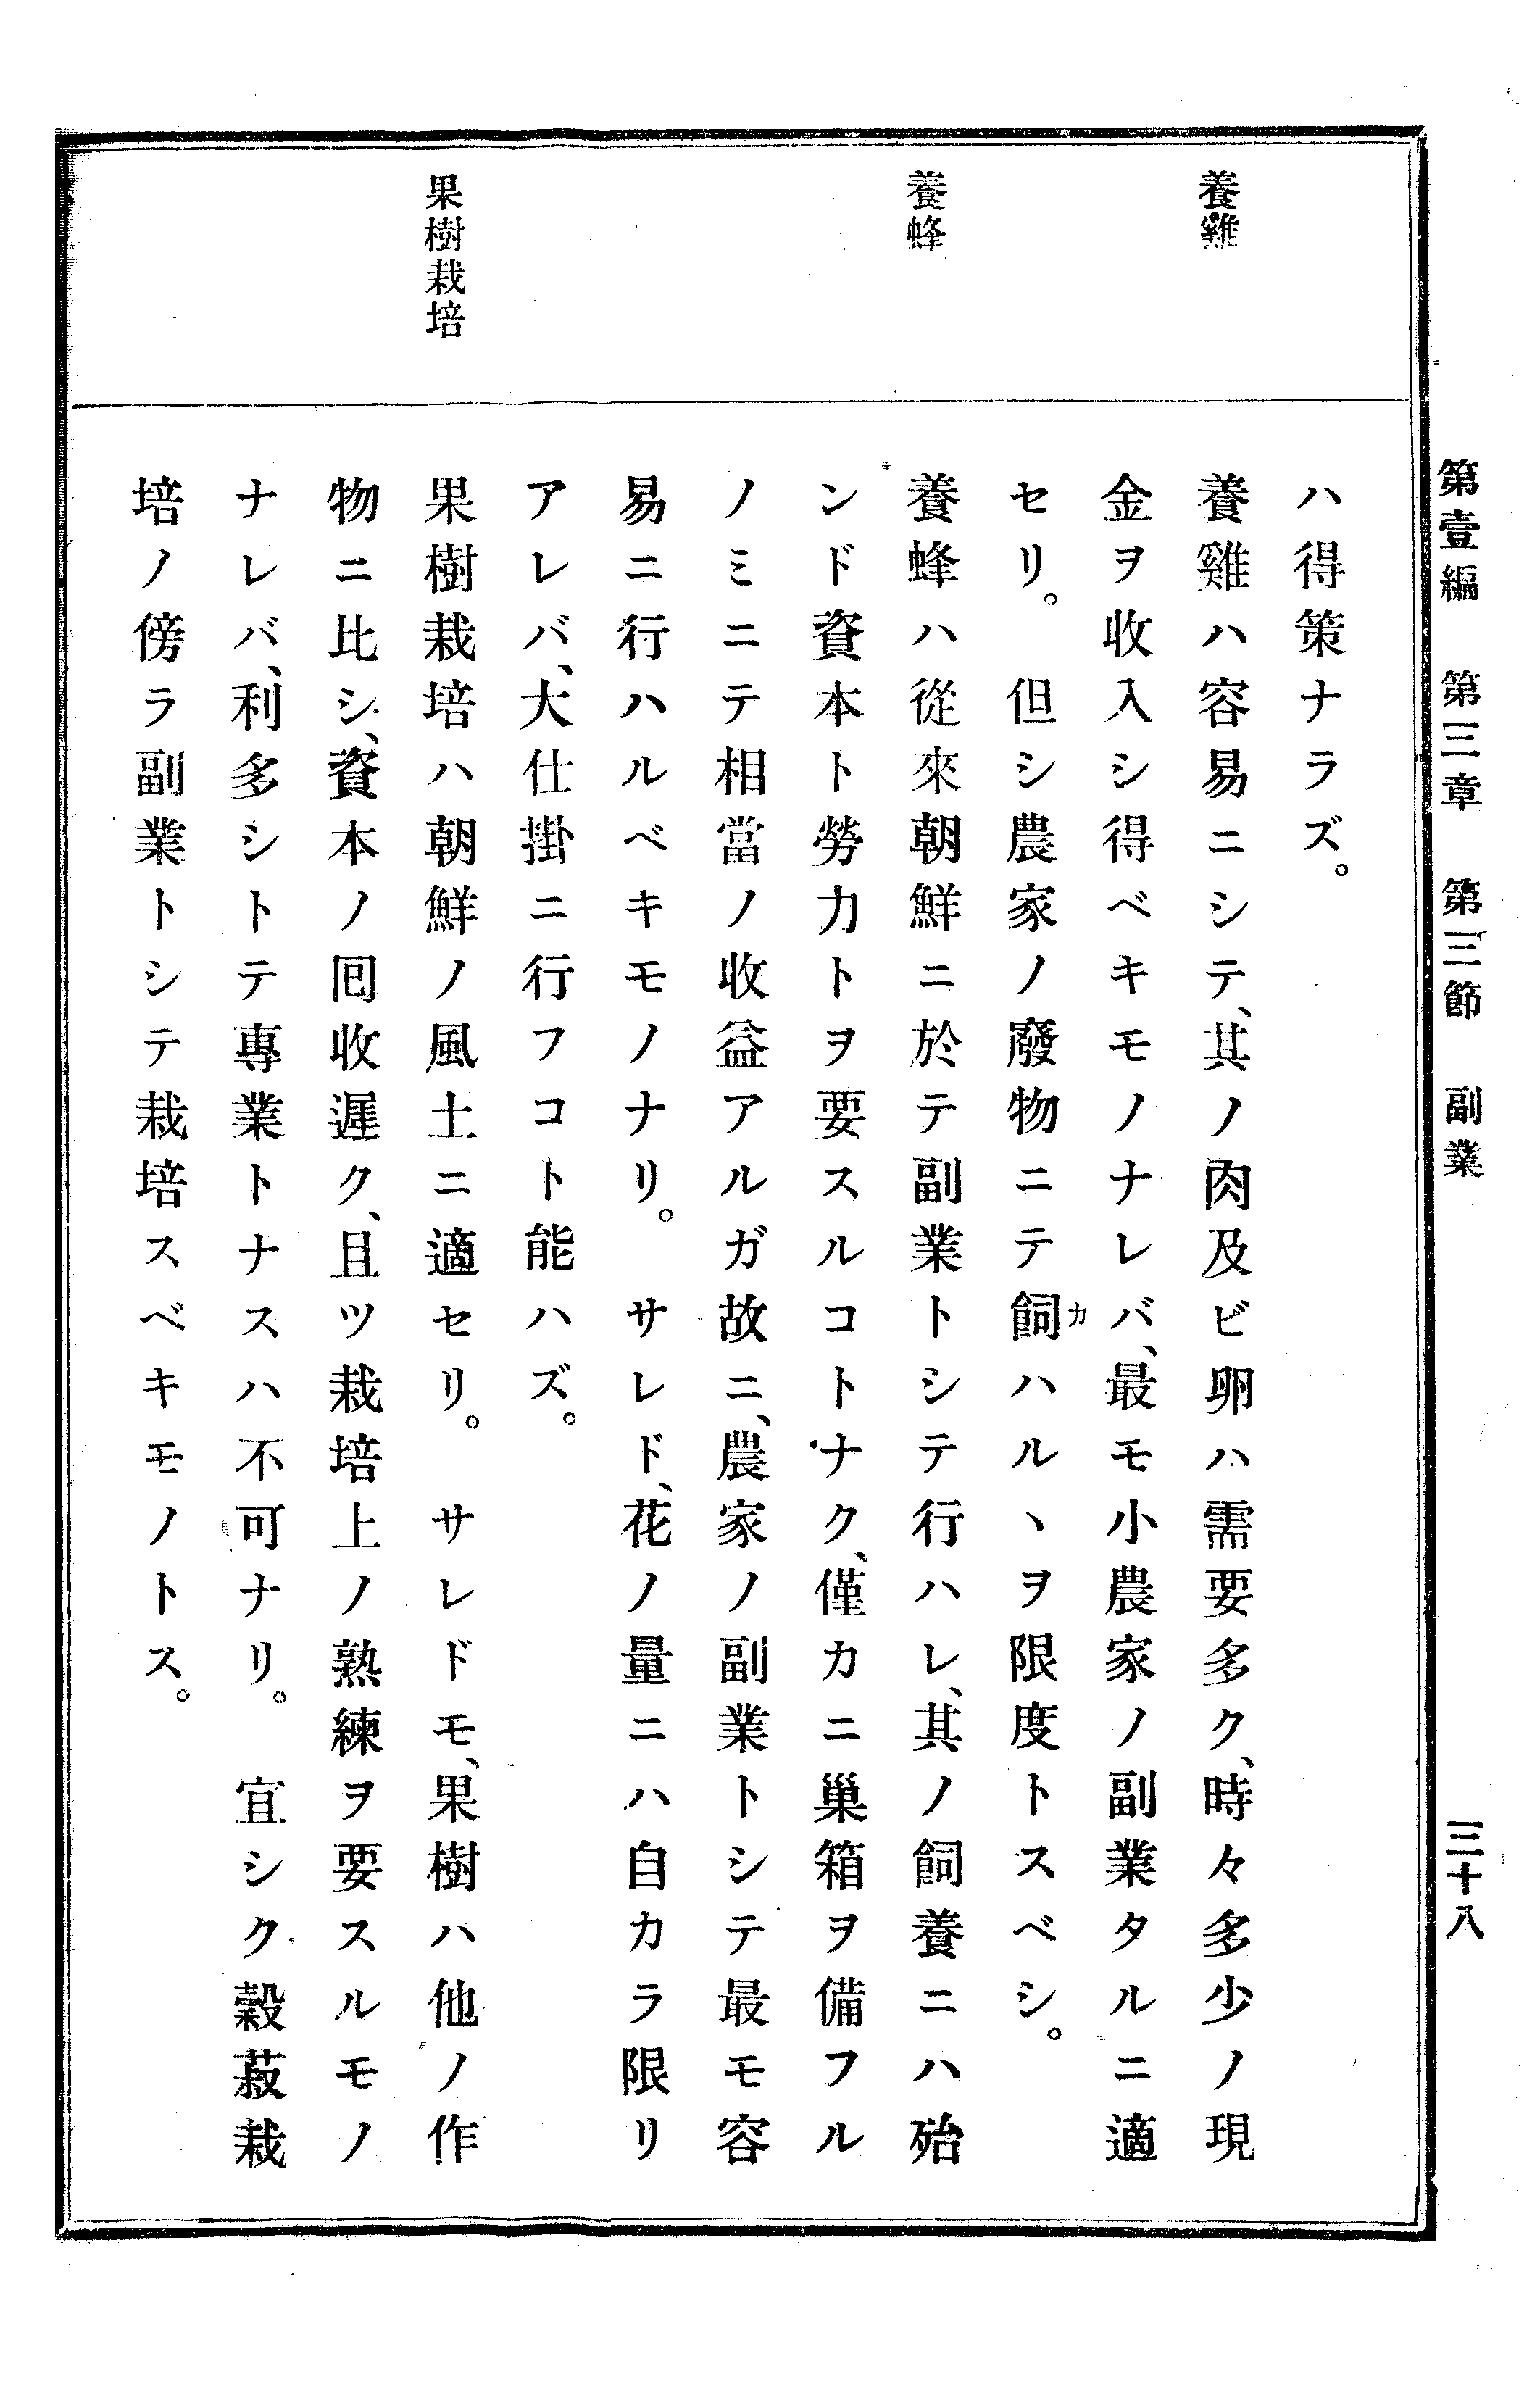 第壹編 第三章 第三節 副業 三十八
養雞
養蜂
果樹栽培
ハ得策ナラズ。
養雞ハ容易ニシテ、其ノ肉及ビ卵ハ需要多ク、時々多少ノ現
金ヲ收入シ得ベキモノナレバ、最モ小農家ノ副業タルニ適
セリ。 但シ農家ノ廢物ニテ飼カハルヽヲ限度トスベシ。
養蜂ハ從來朝鮮ニ於テ副業トシテ行ハレ、其ノ飼養ニハ殆
ンド資本ト勞力トヲ要スルコトナク、僅カニ巢箱ヲ備フル
ノミニテ相當ノ收益アルガ故ニ、農家ノ副業トシテ最モ容
易ニ行ハルベキモノナリ。 サレド、花ノ量ニハ自カラ限リ
アレバ、大仕掛ニ行フコト能ハズ。
果樹栽培ハ朝鮮ノ風土ニ適セリ。 サレドモ、果樹ハ他ノ作
物ニ比シ、資本ノ囘收遲ク、且ツ栽培上ノ熟練ヲ要スルモノ
ナレバ、利多シトテ專業トナスハ不可ナリ。 宜シク穀菽栽
培ノ傍ラ副業トシテ栽培スベキモノトス。